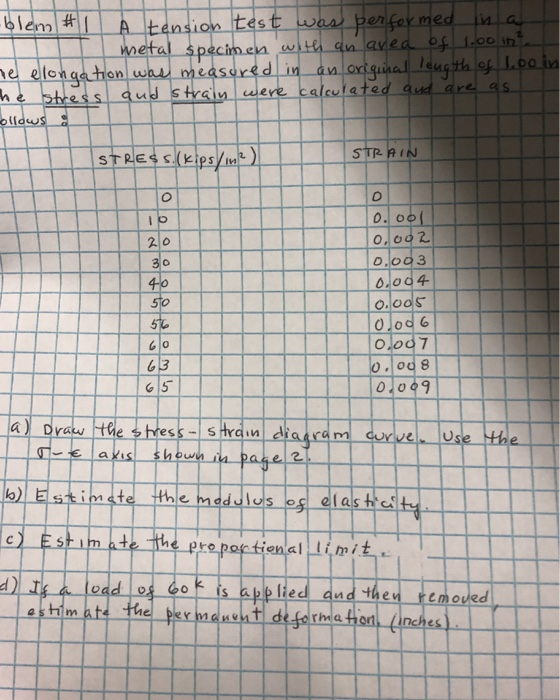 blem #1 A tension test was performed in a
metal specimen with an area of 1.00 in².
he elongation was measured in an original length of 1.00 in
he stress and strain were calculated and are as
ollows :
STRESS (Kips/in²) STRAIN
0 0
10 0.001
20 0.002
30 0.003
40 0.004
50 0.005
56 0.006
60 0.007
63 0.008
65 0.009
a) Draw the stress-strain diagram curve. Use the
σ-ε axis shown in page 2.
b) Estimate the modulus of elasticity.
c) Estimate the proportional limit.
d) If a load of 60k is applied and then removed,
estimate the permanent deformation (inches).